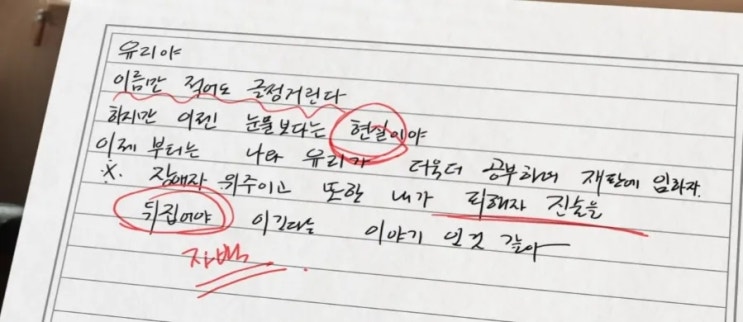 유리야
이름만 적어도 글썽거린다
하지만 이젠 눈물보다는 현실이야
이제 부터는 나와 유리가 더욱더 공부하며 재판에 임하자.
※. 장애자 위주이고 또한 내가 피해자 진술을
뒤집어야 이긴다는 이야기 인것 같아
자백